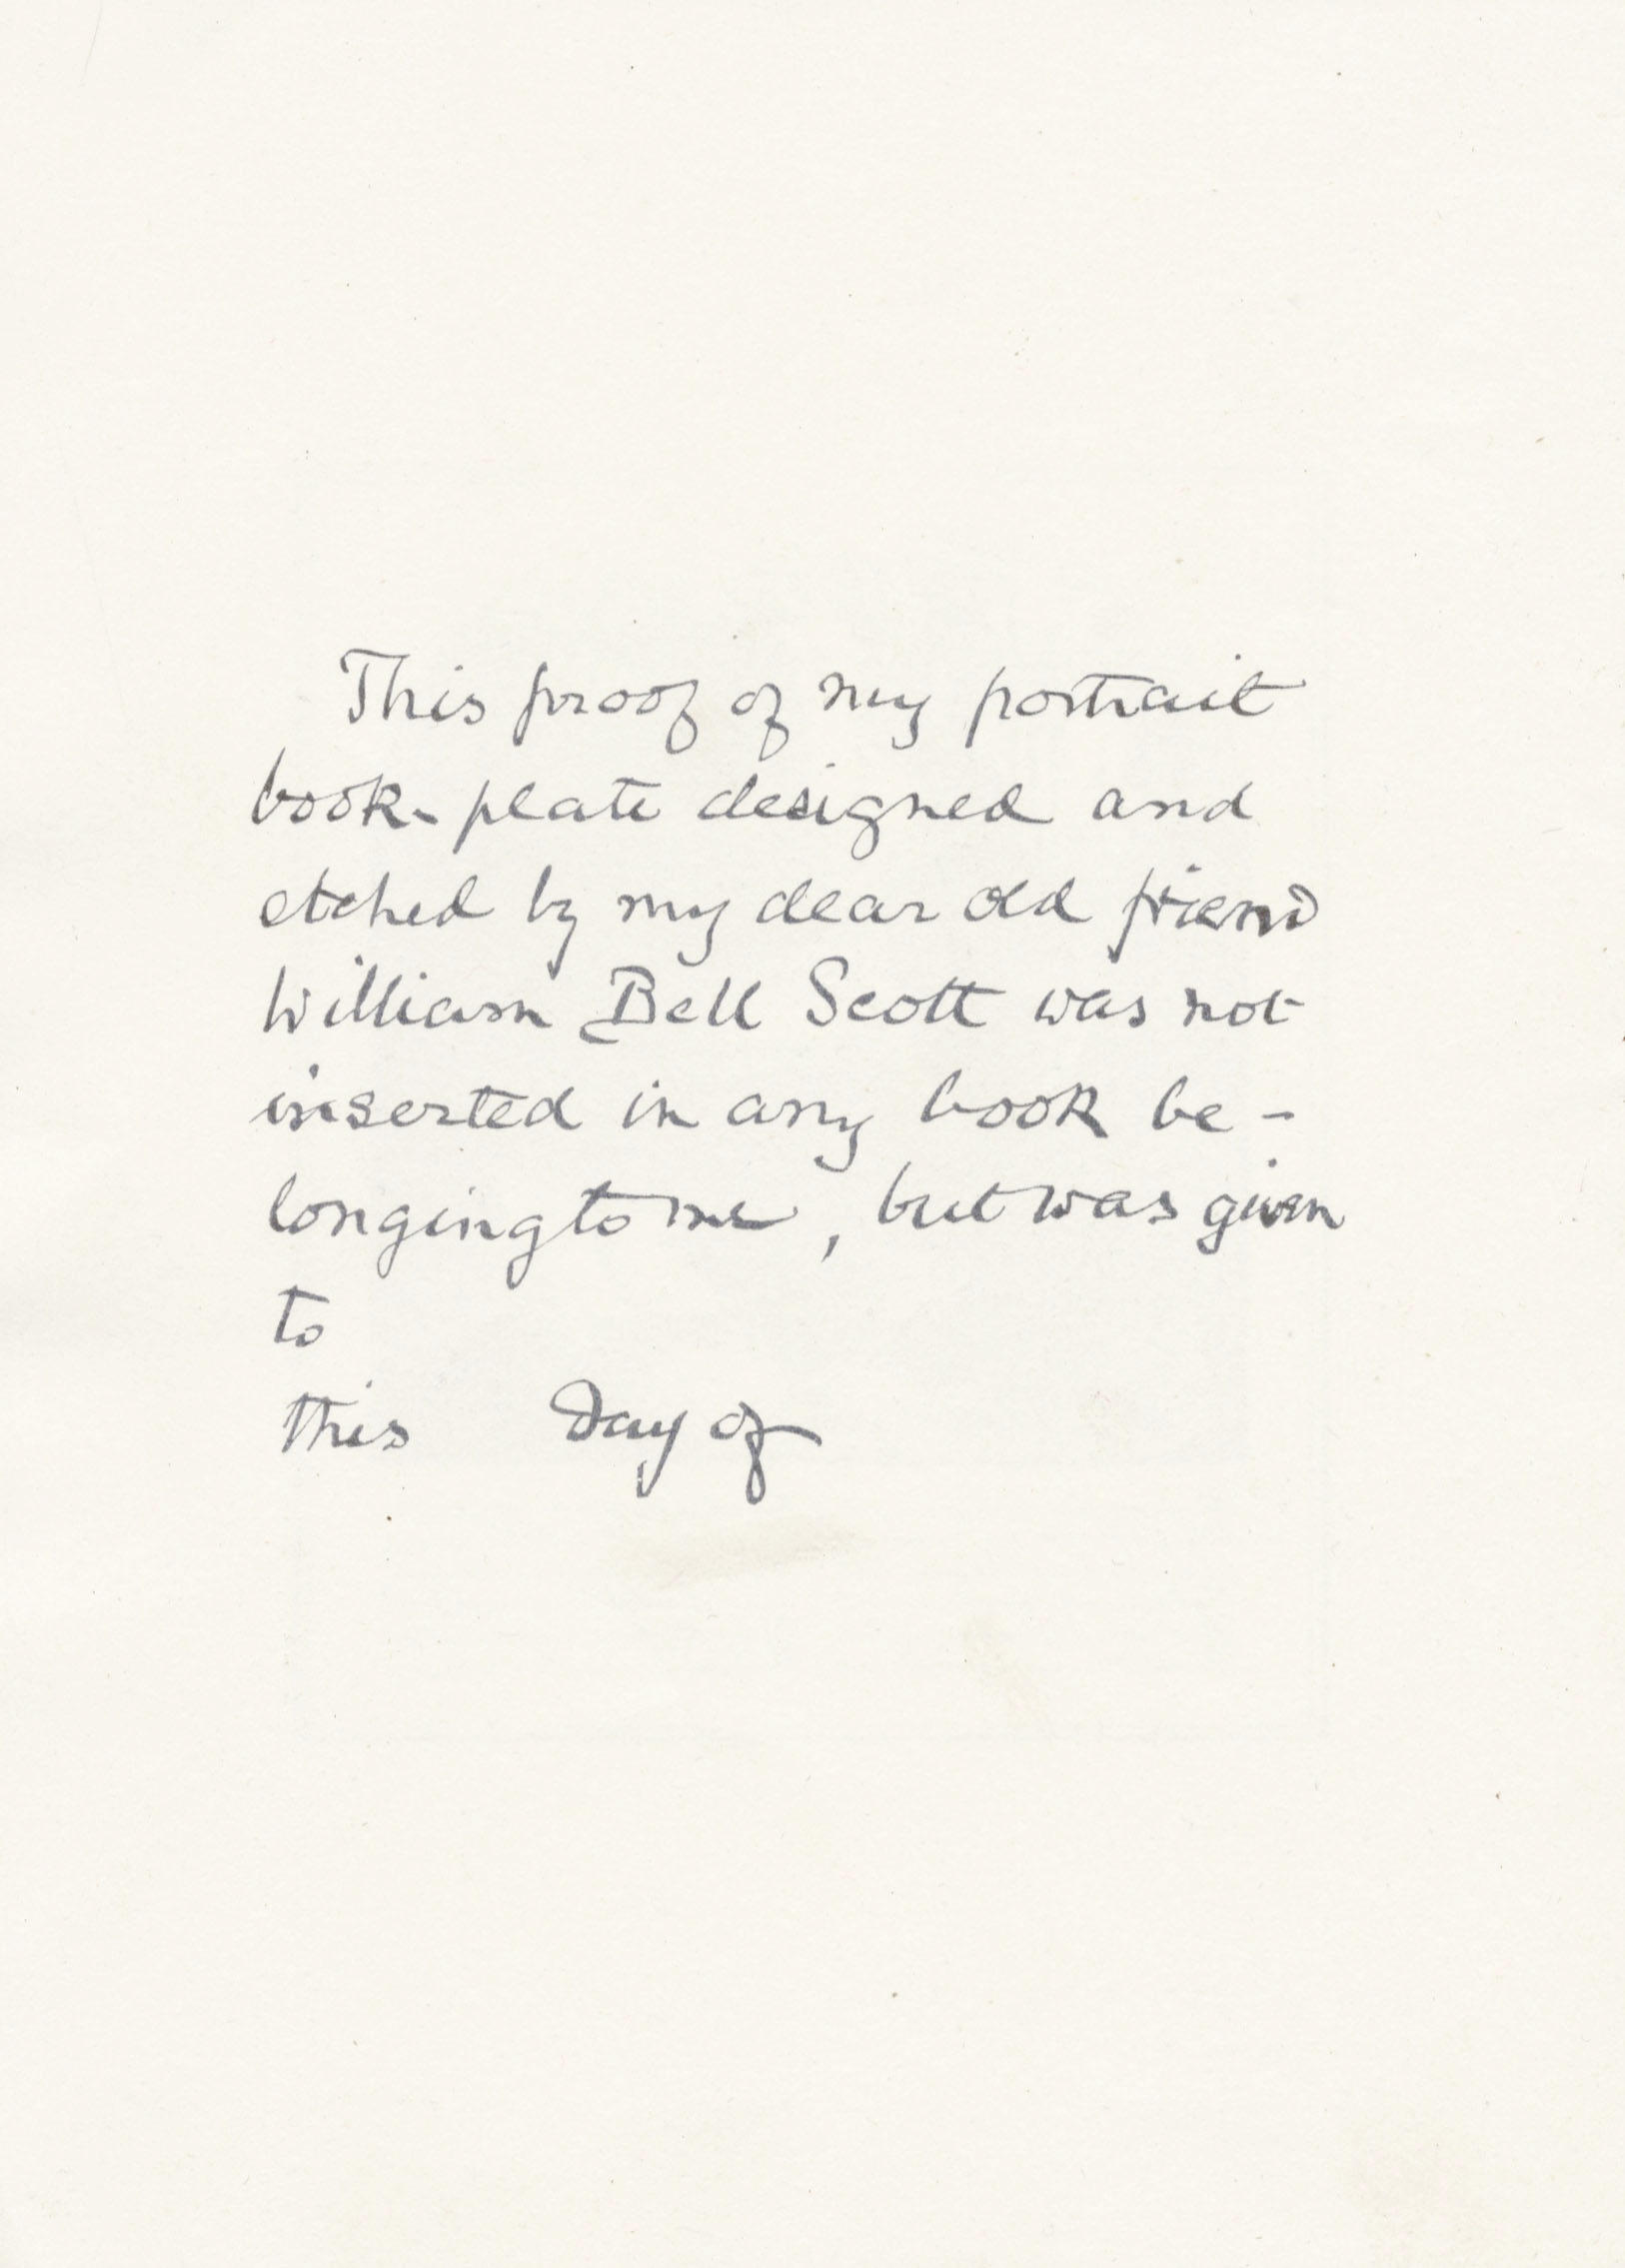 This proof of my portrait
book-plate designed and
etched by my dear old friend
William Bell Scott was not
inserted in any book be-
longing to me, but was given
to
this Day of